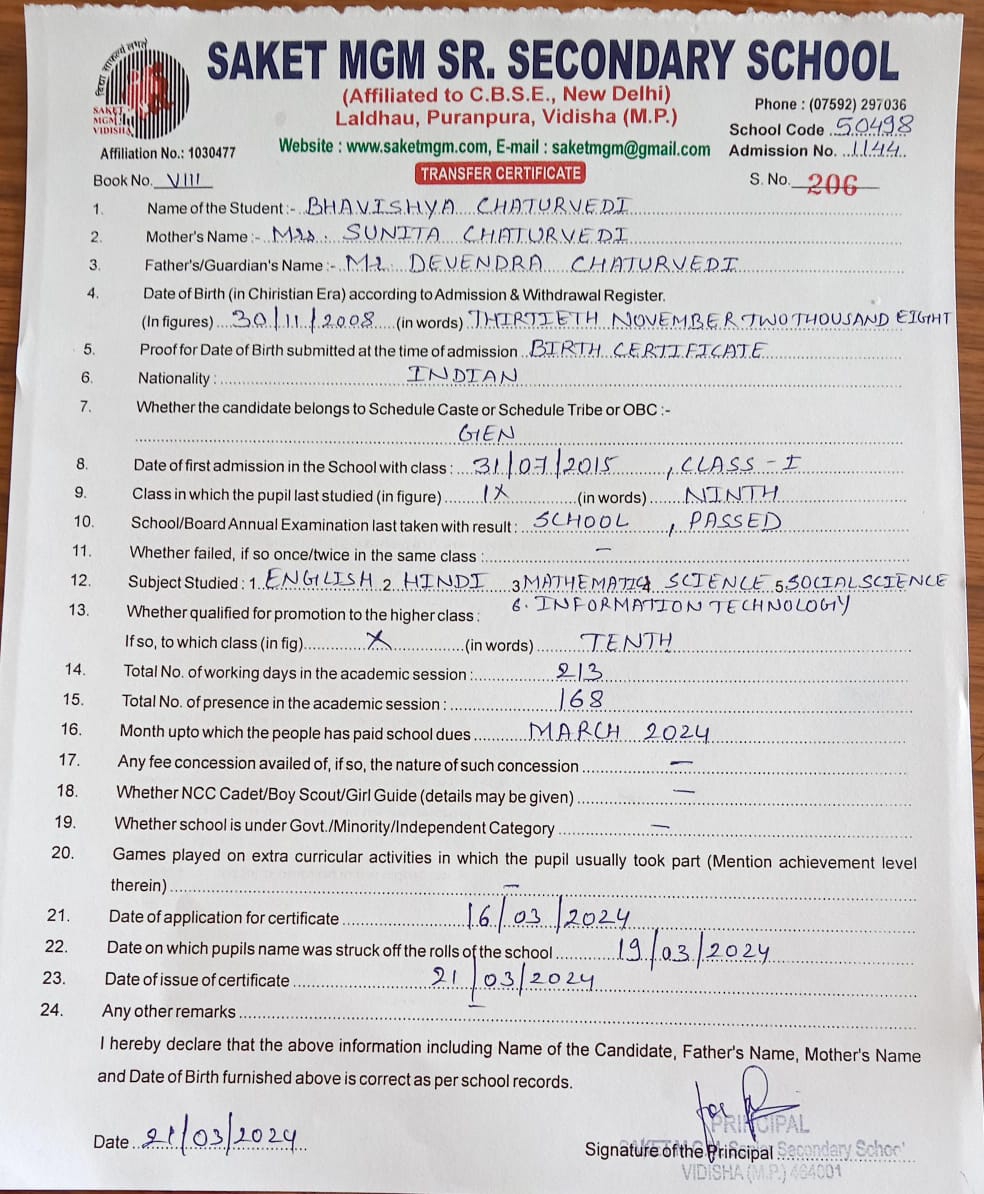 विद्या साफल्यं लभते
SAKET MGM VIDISHA
SAKET MGM SR. SECONDARY SCHOOL
(Affiliated to C.B.S.E., New Delhi)
Laldhau, Puranpura, Vidisha (M.P.)
Phone : (07592) 297036
School Code 50498
Affiliation No.: 1030477 Website : www.saketmgm.com, E-mail : saketmgm@gmail.com Admission No. 1144
Book No. VIII TRANSFER CERTIFICATE S. No. 206
1. Name of the Student :- BHAVISHYA CHATURVEDI
2. Mother's Name :- Mrs. SUNITA CHATURVEDI
3. Father's/Guardian's Name :- Mr. DEVENDRA CHATURVEDI
4. Date of Birth (in Chiristian Era) according to Admission & Withdrawal Register.
(In figures) 30/11/2008 (in words) THIRTIETH NOVEMBER TWO THOUSAND EIGHT
5. Proof for Date of Birth submitted at the time of admission BIRTH CERTIFICATE
6. Nationality : INDIAN
7. Whether the candidate belongs to Schedule Caste or Schedule Tribe or OBC :-
GEN
8. Date of first admission in the School with class : 31/07/2015, CLASS - I
9. Class in which the pupil last studied (in figure) IX (in words) NINTH
10. School/Board Annual Examination last taken with result : SCHOOL, PASSED
11. Whether failed, if so once/twice in the same class : –
12. Subject Studied : 1. ENGLISH 2. HINDI 3 MATHEMATICS 4 SCIENCE 5 SOCIAL SCIENCE
6. INFORMATION TECHNOLOGY
13. Whether qualified for promotion to the higher class :
If so, to which class (in fig) X (in words) TENTH
14. Total No. of working days in the academic session : 213
15. Total No. of presence in the academic session : 168
16. Month upto which the people has paid school dues MARCH 2024
17. Any fee concession availed of, if so, the nature of such concession –
18. Whether NCC Cadet/Boy Scout/Girl Guide (details may be given) –
19. Whether school is under Govt./Minority/Independent Category –
20. Games played on extra curricular activities in which the pupil usually took part (Mention achievement level
therein) –
21. Date of application for certificate 16/03/2024
22. Date on which pupils name was struck off the rolls of the school 19/03/2024
23. Date of issue of certificate 21/03/2024
24. Any other remarks –
I hereby declare that the above information including Name of the Candidate, Father's Name, Mother's Name
and Date of Birth furnished above is correct as per school records.
for
PRINCIPAL
Date 21/03/2024 Signature of the Principal
Secondary School
VIDISHA (M.P.) 464001